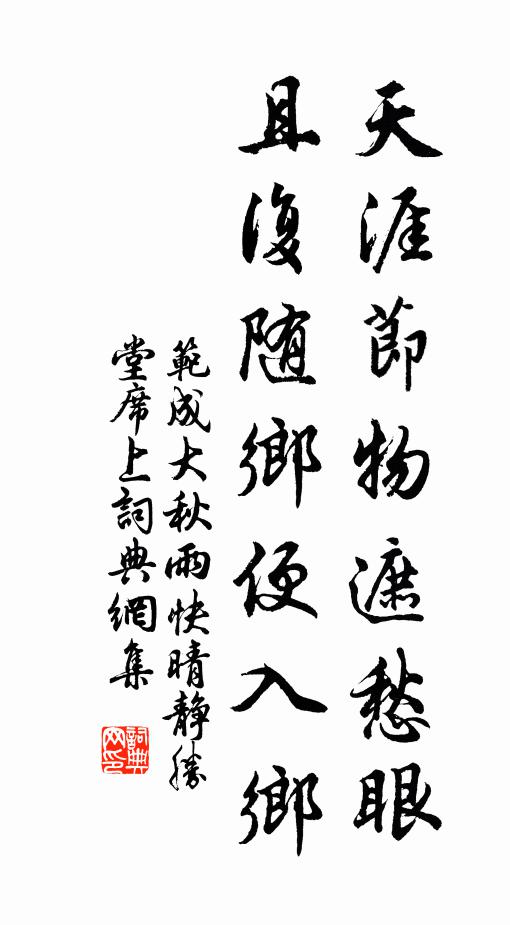 天涯節物遮愁眼
且復随鄉便入鄉
範成大秋雨快晴静勝
堂席上詞典網集
詞典
网印